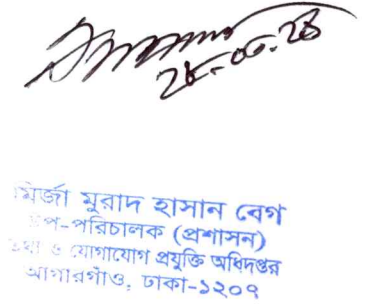 ২৮.০৩.২৪
মির্জা মুরাদ হাসান বেগ
উপ-পরিচালক (প্রশাসন)
তথ্য ও যোগাযোগ প্রযুক্তি অধিদপ্তর
আগারগাঁও, ঢাকা-১২০৭